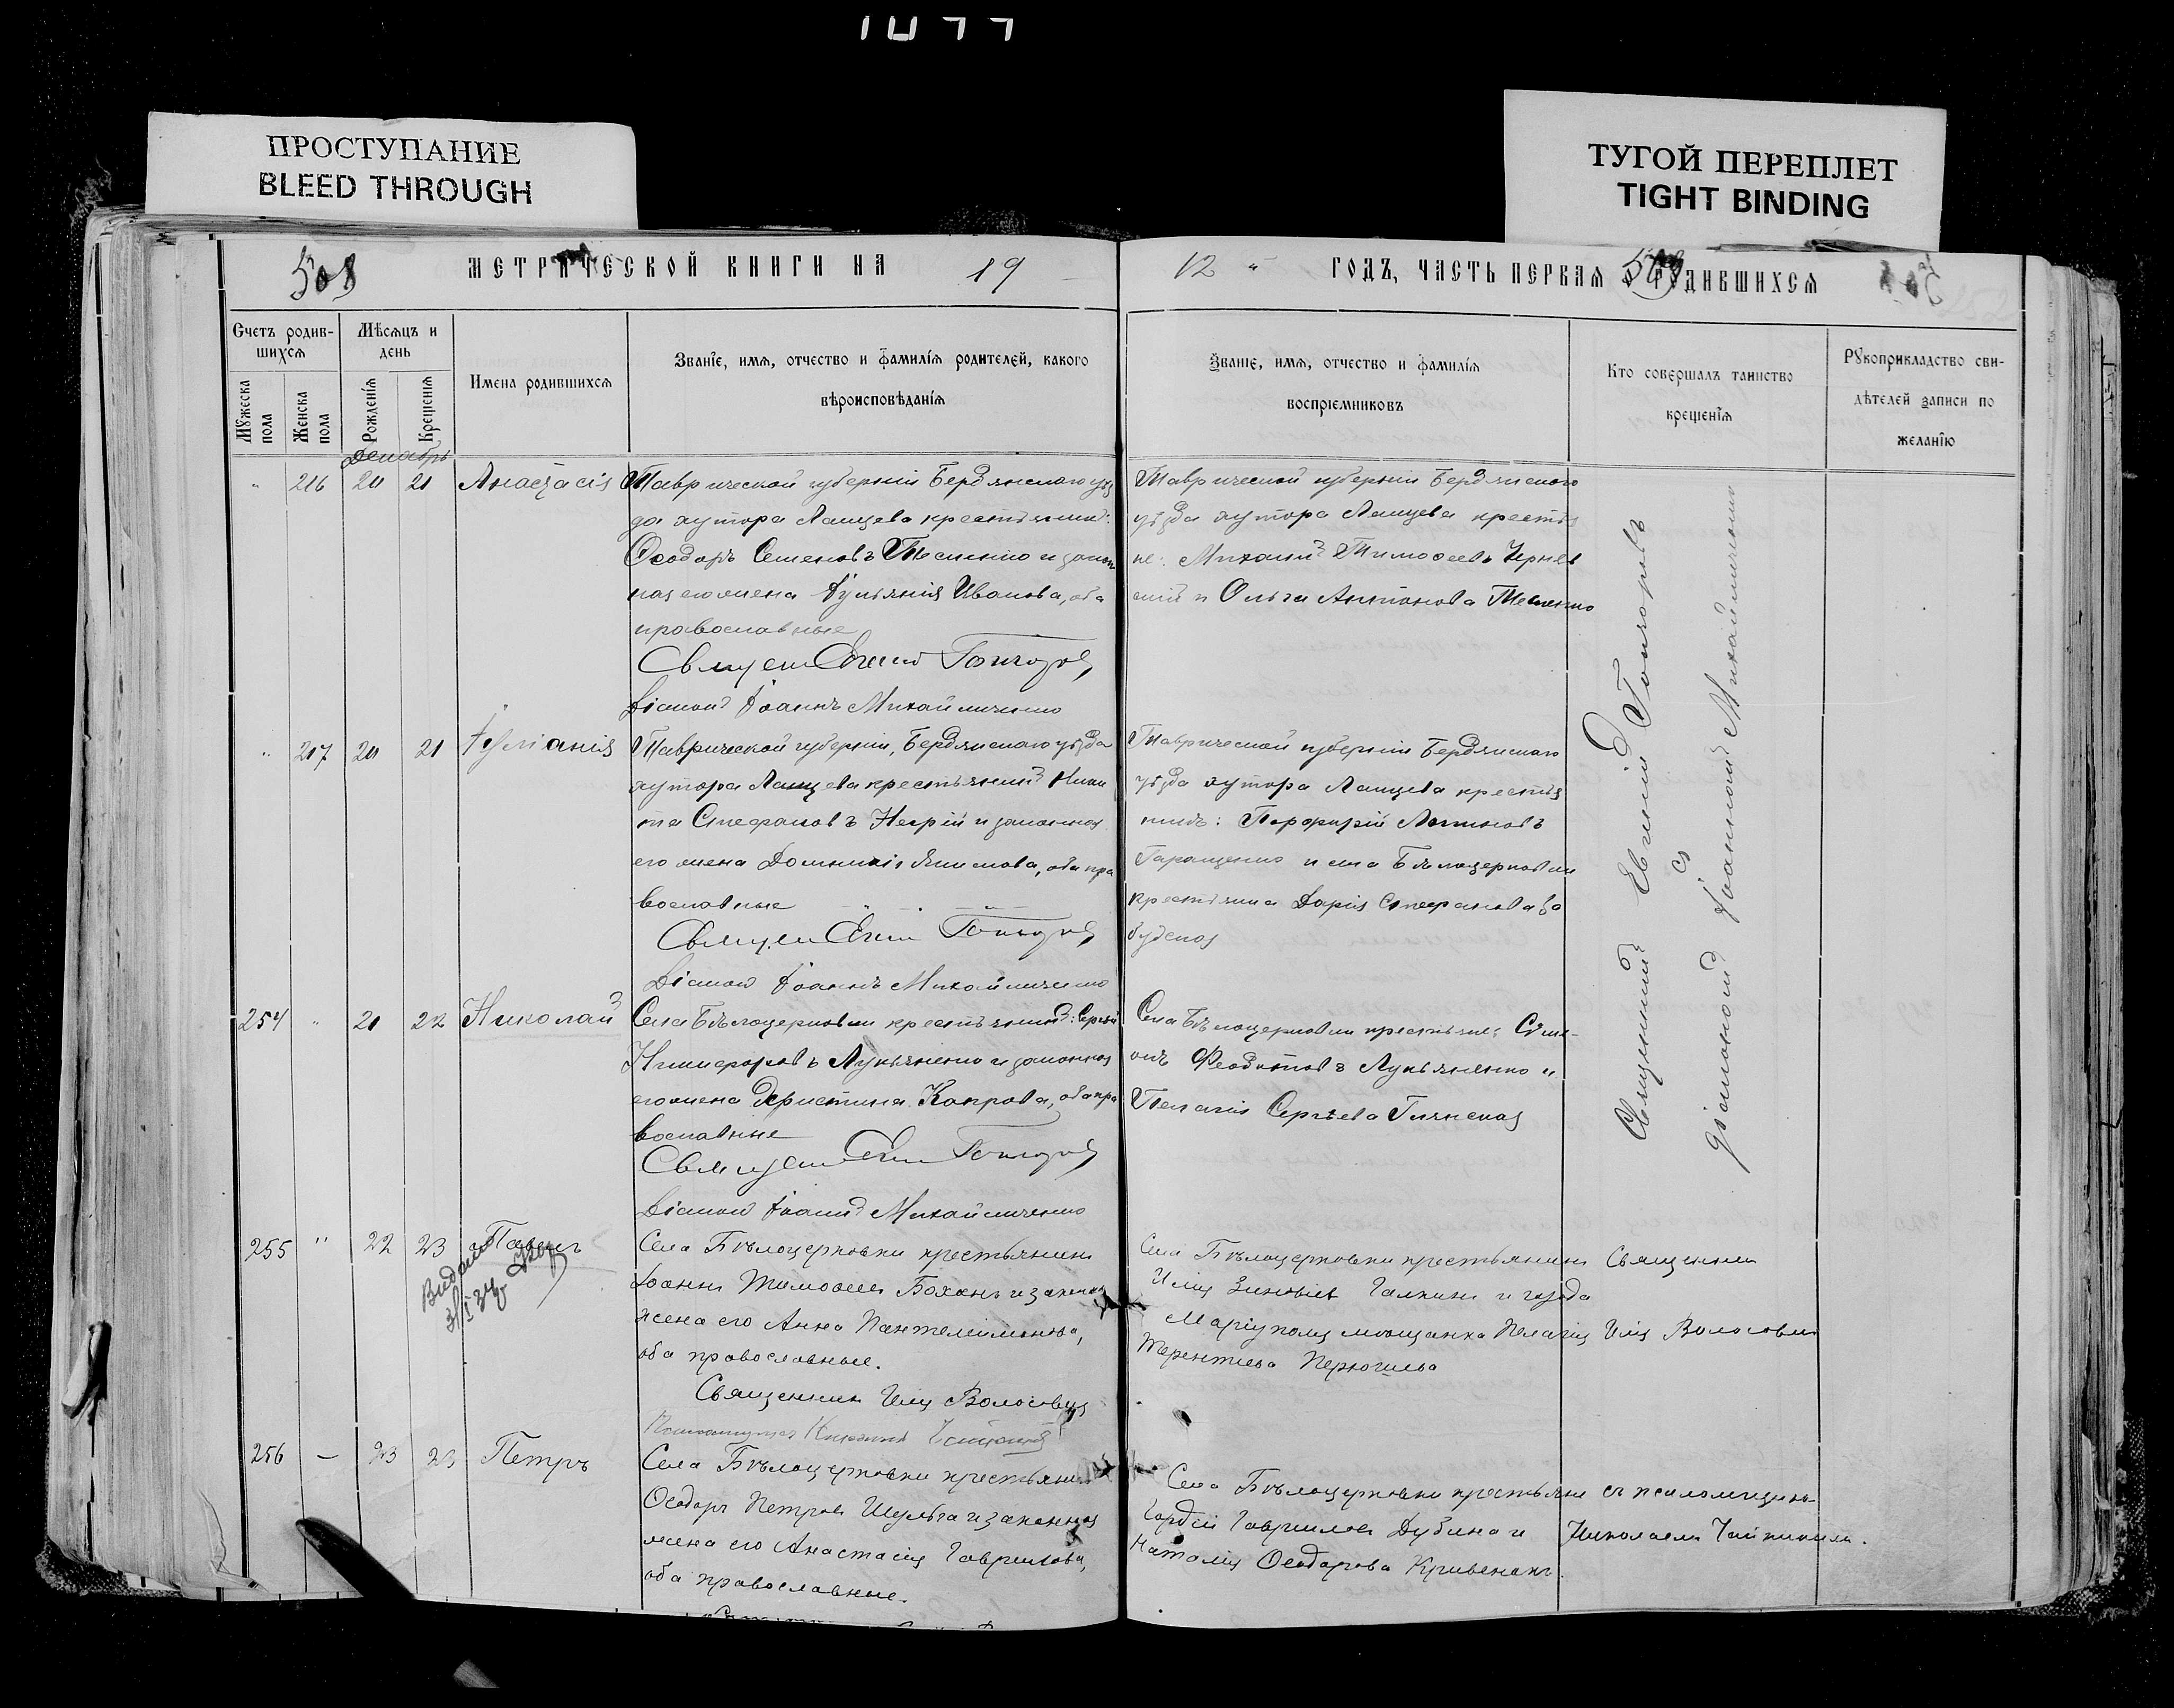 ПРОСТУПАНИЕ
BLEED THROUGH
ТУГОЙ ПЕРЕПЛЕТ
TIGHT BINDING
508
МЕТРИЧЕСКОЙ КНИГИ НА 19
12 ГОДЪ, ЧАСТЬ ПЕРВАЯ О РОДИВШИХСЯ
Счетъ родив-
шихся
Мѣсяцъ и
день
Мужеска
пола
Женска
пола
Рожденія
Крещенія
Имена родившихся
Званіе, имя, отчество и фамилія родителей, какого
вѣроисповѣданія
Званіе, имя, отчество и фамилія
воспріемниковъ
Кто совершалъ таинство
крещенія
Рукоприкладство сви-
дѣтелей записи по
желанію
Декабрь
216 20 21 Анастасія
Таврической губерніи Бердянскаго уѣз
да хутора Ланцева крестьянинъ:
Ѳеодоръ Семеновъ и закон
ная его жена Іуліанія Иванова, оба
православные
Священ Евгеній Гончаровъ
Діаконъ Іоаннъ Михайличенко
Таврической губерніи Бердянскаго
уѣзда хутора Ланцева крестья
не: Михаилъ Тимофеевъ Черняв
скій и Ольга Антонова
217 20 21 Іуліанія
Таврической губерніи, Бердянскаго уѣзда
хутора Ланцева крестьянинъ Ники
та Стефановъ и законная
его жена Домникія Якимова, оба пра
вославные
Священ Евгеній Гончаровъ
Діаконъ Іоаннъ Михайличенко
Таврической губерніи Бердянскаго
уѣзда хутора Ланцева крестья
нинъ: Порфирій Логиновъ
Геращенко и села Бѣлоцерковки
крестьянка Дарія Стефанова За
будская
254 21 22 Николай
Села Бѣлоцерковки крестьянинъ: Сергѣй
Никифоровъ Лукьяненко и законная
его жена Христина Карпова, оба пра
вославные
Священ Евгеній Гончаровъ
Діаконъ Іоаннъ Михайличенко
Села Бѣлоцерковки крестьяне: Симе-
онъ Феодотовъ Лукьяненко и
Пелагія Сергѣева Глянская
Священникъ Евгеній Гончаровъ
съ
діакономъ Іоанномъ Михайличенкомъ
255 22 23 Павелъ
Села Бѣлоцерковки крестьянинъ
Іоаннъ Тимофеевъ Боханъ и законная
жена его Анна Пантелеимонова,
оба православные.
Священникъ Илія Волосовичъ
Села Бѣлоцерковки крестьянинъ
Илія Зиновьевъ Галкинъ и города
Маріуполя мѣщанка Пелагія
Терентьева
Священникъ
Илія Волосовичъ
256 — 23 23 Петръ
Села Бѣлоцерковки крестьянинъ
Ѳеодоръ Петровъ Шульга и законная
жена его Анастасія Гаврилова,
оба православные.
Села Бѣлоцерковки крестьяне
Гордій Гавриловъ Дубина и
Наталія Ѳеодорова Кривенокъ.
съ псаломщик.
Николаемъ